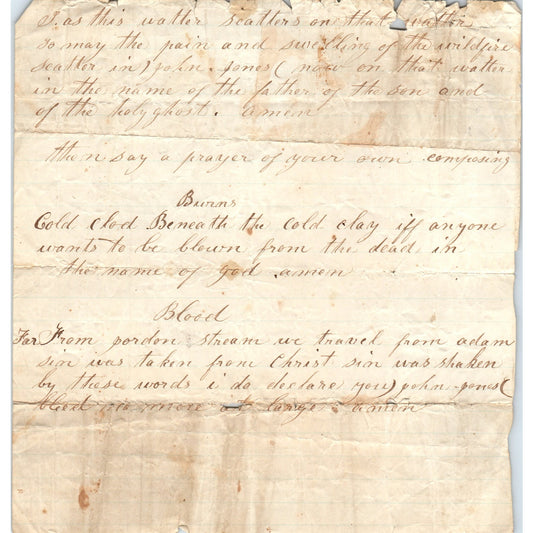 I. as this watter scatters on that watter
so may the pain and swelling of the wildfire
scatter in) john Jones( now on that watter
in the name of the father of the son and
of the holyghost. amen
then say a prayer of your own composing
Burns
Cold clod Beneath the cold clay iff anyone
wants to be blown from the dead in
the name of god amen
Blood
Far From pordon stream we travel from adam
sin was taken from Christ sin was shaken
by these words i do declare you) john Jones(
bleed no more at large. amen